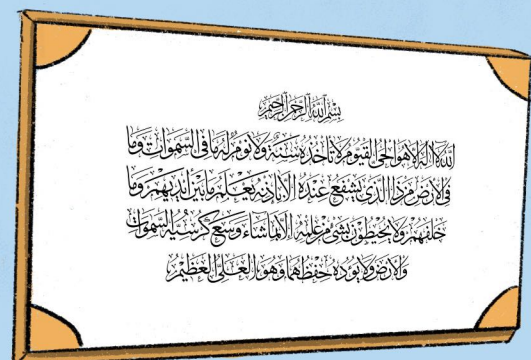 بسم الله الرحمن الرحيم
الله لا اله الا هو الحي القيوم لا تأخذه سنة ولا نوم له ما في السموات وما
في الارض من ذا الذي يشفع عنده الا باذنه يعلم ما بين ايديهم وما
خلفهم ولا يحيطون بشئ من علمه الا بما شاء وسع كرسيه السموات
والارض ولا يوده حفظهما وهو العلي العظيم